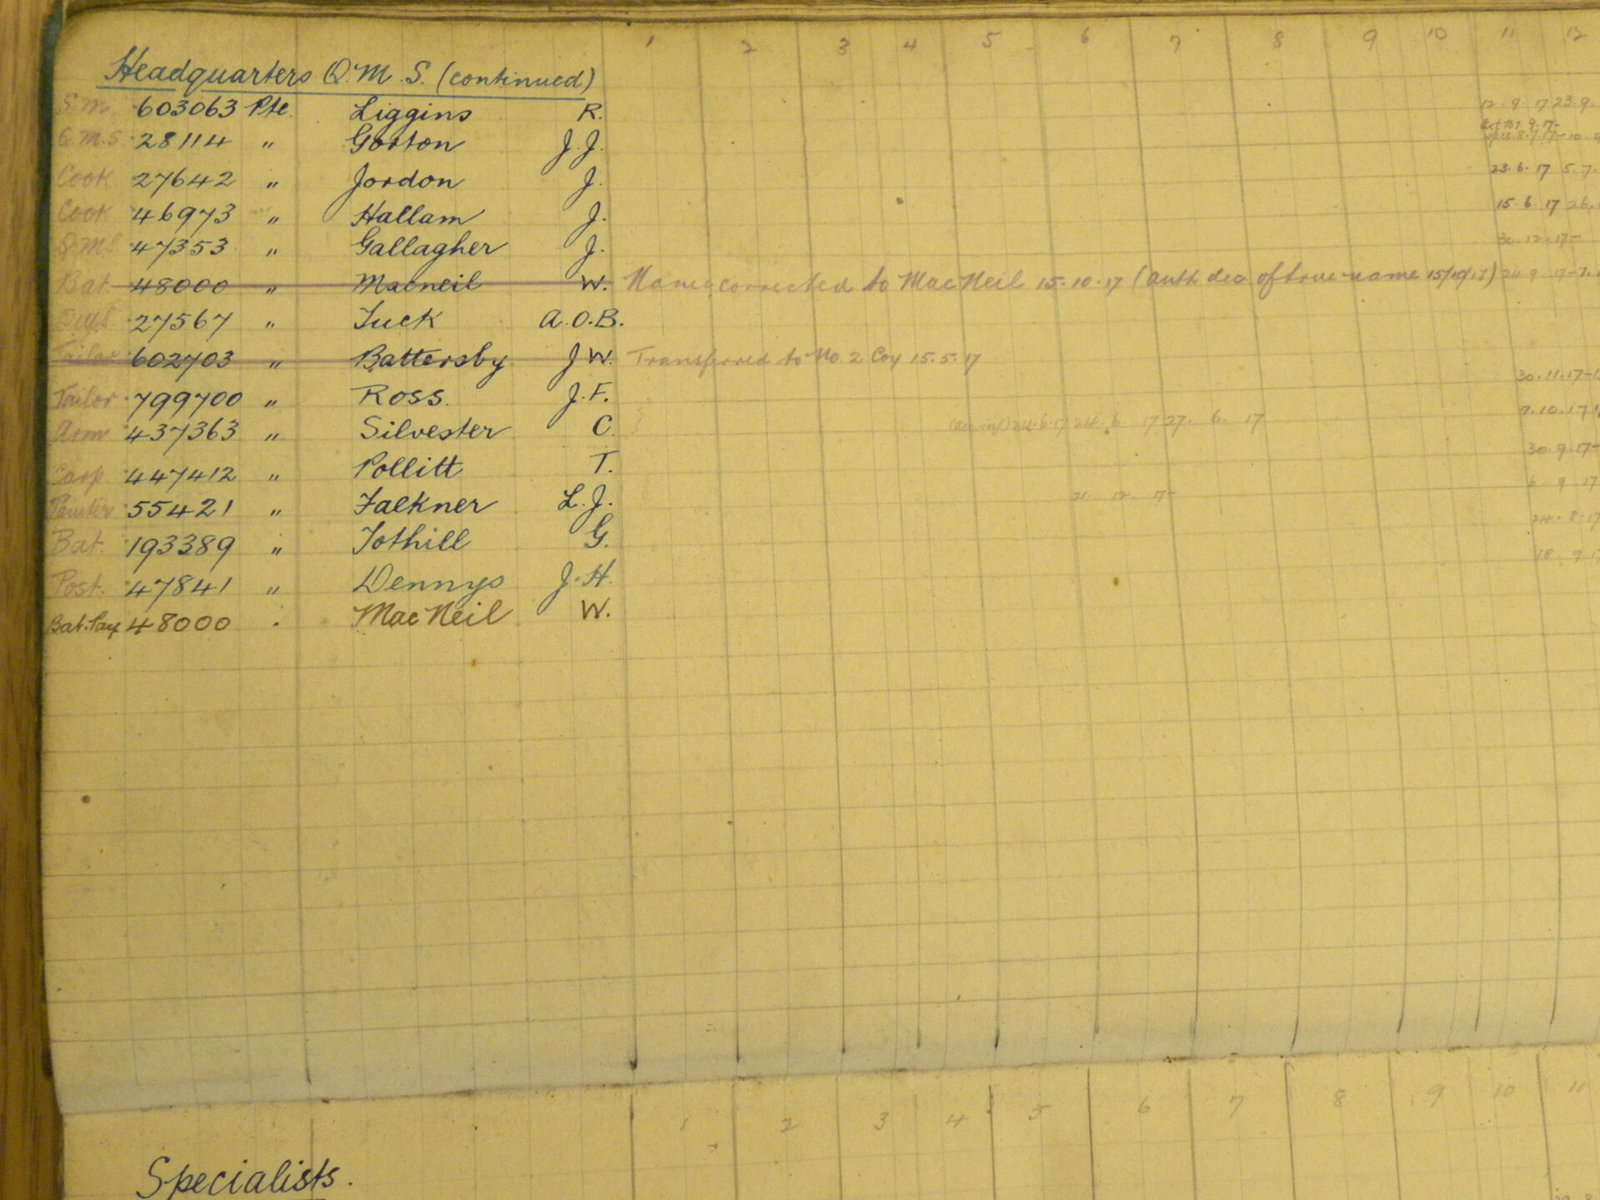 1 2 3 4 5 6 7 8 9 10 11 12
Headquarters Q.M.S. (continued)
S.M. 603063 Pte. Liggins R. 12. 9. 17 23. 9.
Q.M.S. 28114 " Gorton J.J.
Cook 27642 " Jordon J. 23. 6. 17 5. 7.
Cook 46973 " Hallam J. 15. 6. 17 26.
47353 " Gallagher J. 30. 12. 17-
Bat 48000 " Macneil W. Name corrected to MacNeil 15.10.17 (Auth dec of true name 15/10/17) 24. 9. 17-
27567 " Tuck A.O.B.
Tailor 602703 " Battersby J W. Transferred to No. 2 Coy 15.5.17
Tailor 799700 " Ross. J.F. 30. 11. 17-
Arm 437363 " Silvester C. 24. 6. 17 27. 6. 17 7. 10. 17
Carp 447412 " Pollitt T. 30. 9. 17-
Painter 55421 " Falkner L.J. 21. 12. 17- 6. 9. 17
Bat. 193389 " Tothill G. 24. 8. 17
Post. 47841 " Dennys J.H. 18. 9. 17
Bat. Pay 48000 " MacNeil W.
1 2 3 4 5 6 7 8 9 10 11
Specialists.